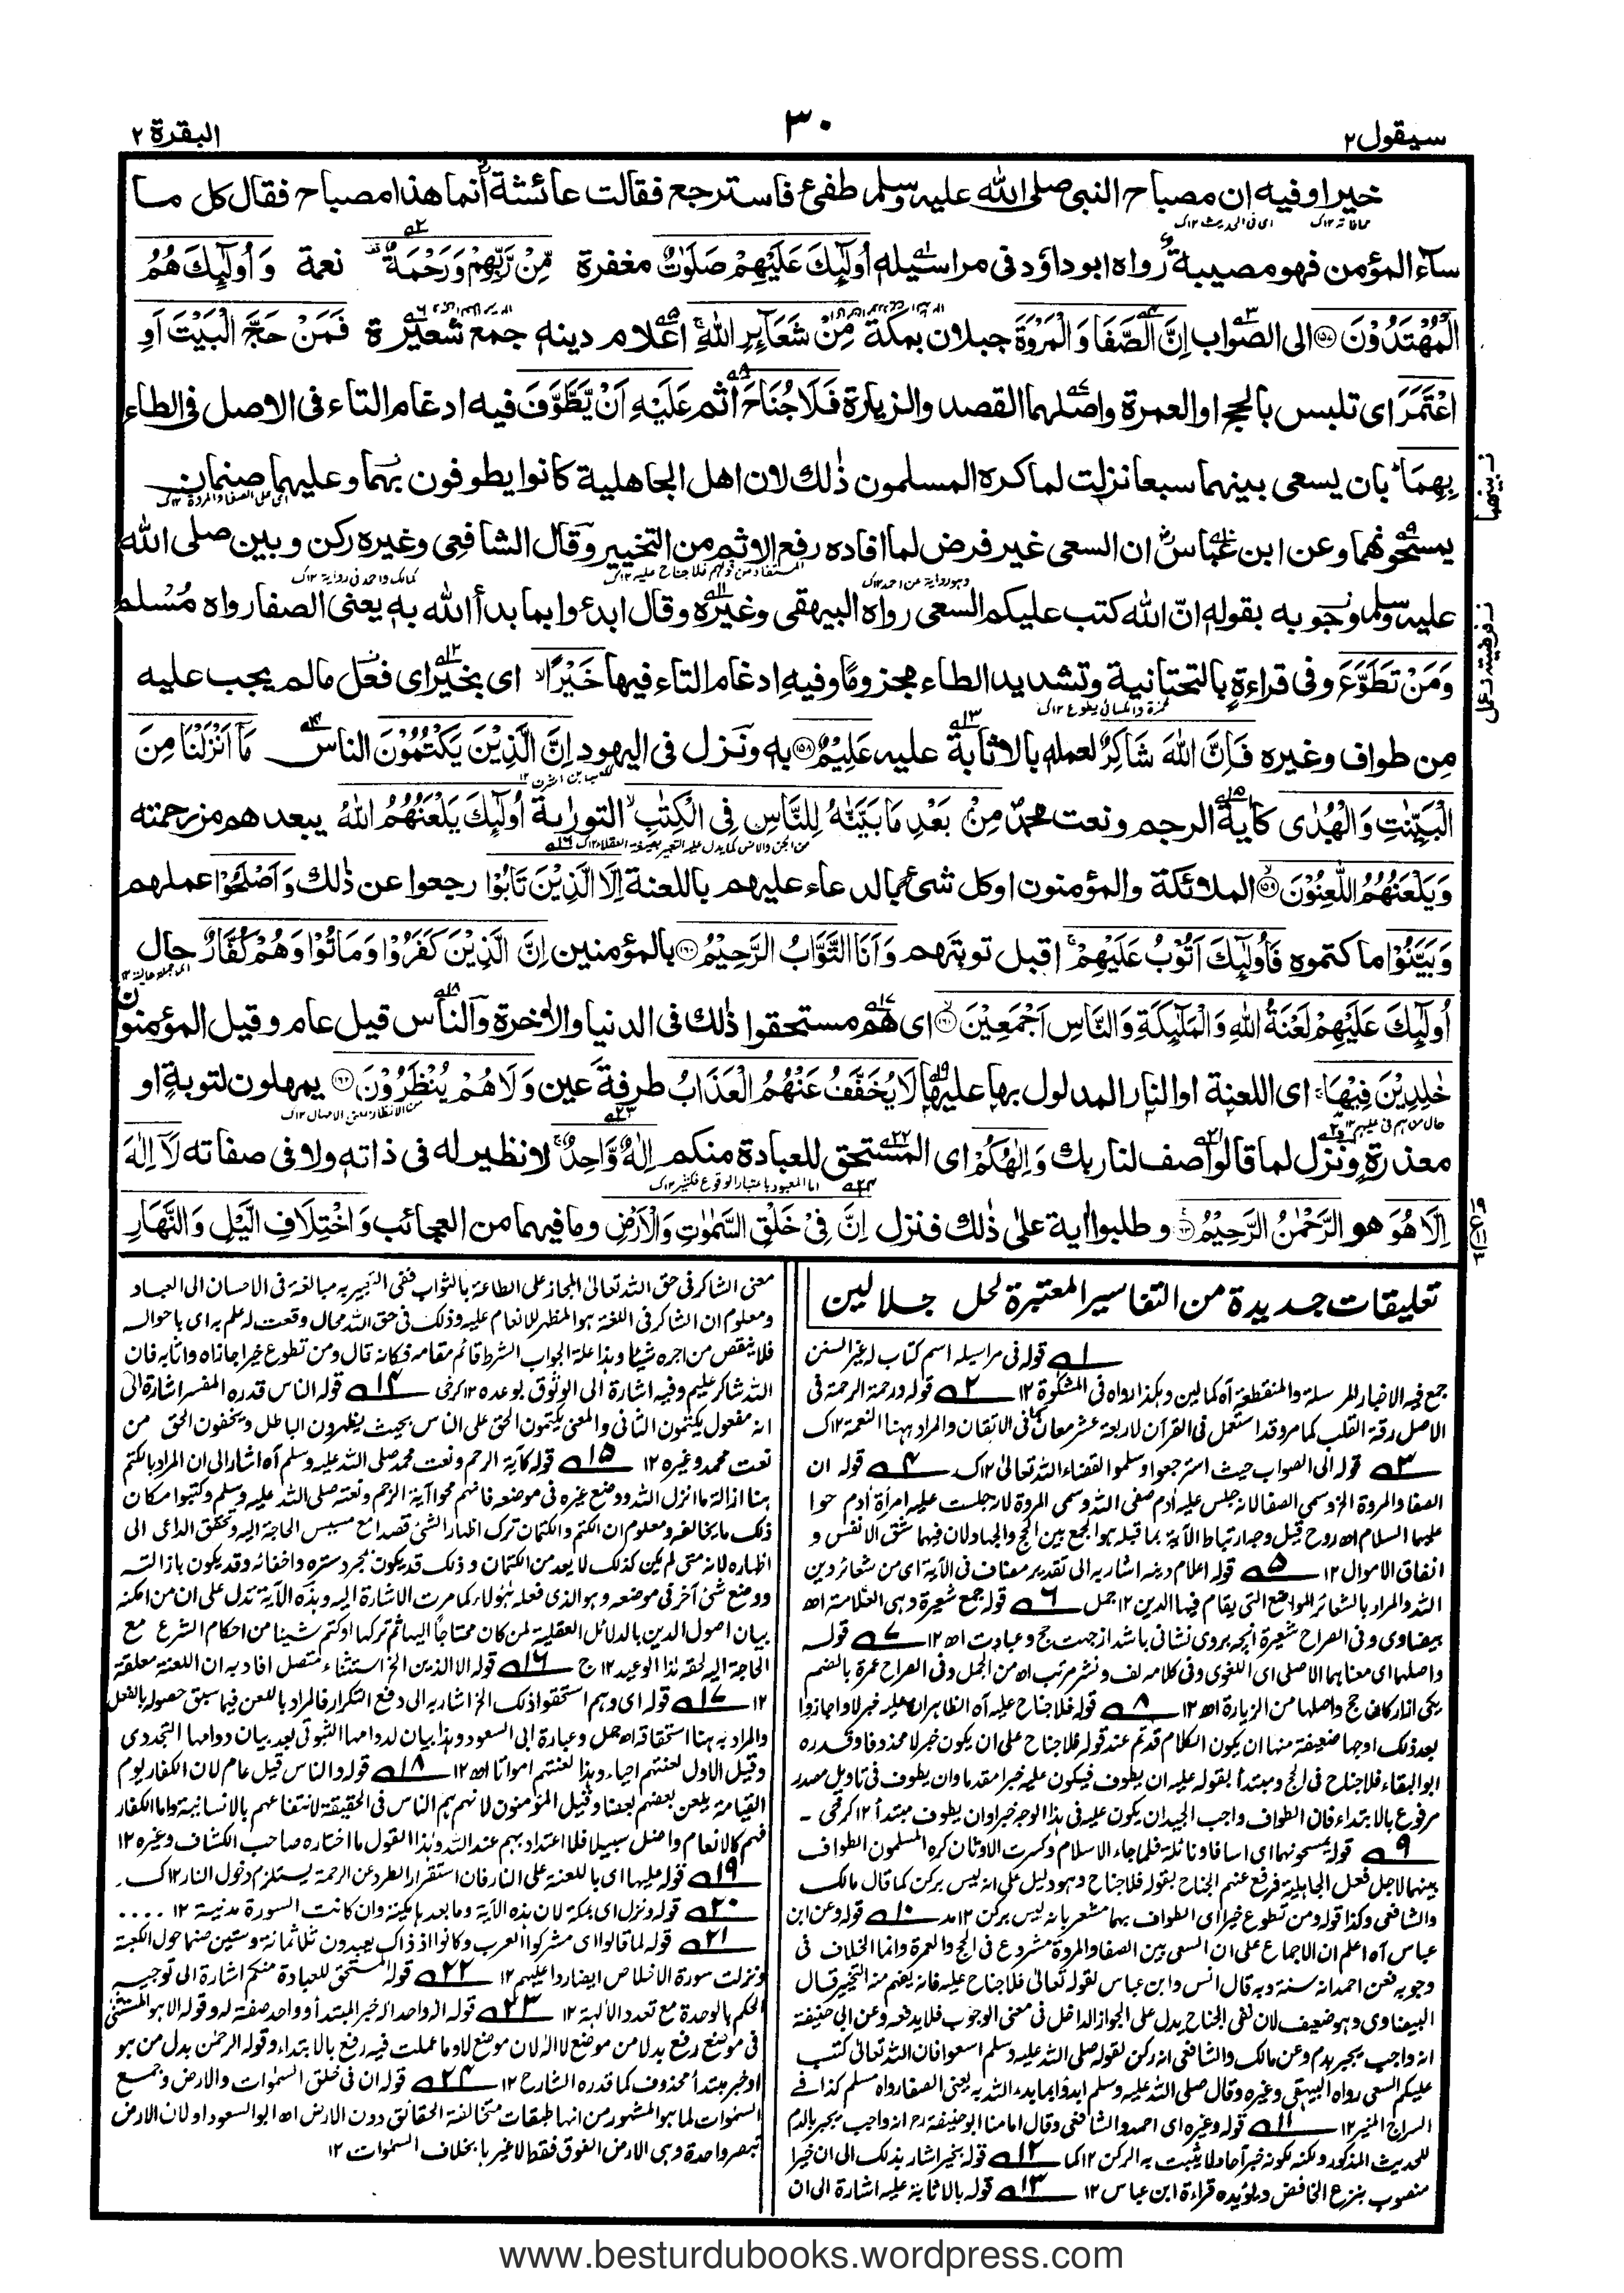 سيقول ٢
٣٠
البقرة ٢
خيرا وفيه ان مصباح النبي صلى الله عليه وسلم طفئ فاسترجع فقالت عائشة أنما هذا مصباح فقال كل ما
ساء المؤمن فهو مصيبة رواه ابو داؤد في مراسيله أُولَٰئِكَ عَلَيْهِمْ صَلَوٰتٌ مغفرة مِّنْ رَّبِّهِمْ وَرَحْمَةٌ نعمة وَأُولَٰئِكَ هُمُ
الْمُهْتَدُوْنَ الى الصواب اِنَّ الصَّفَا وَالْمَرْوَةَ جبلان بمكة مِنْ شَعَآئِرِ اللهِ اعلام دينه جمع شعيرة فَمَنْ حَجَّ الْبَيْتَ اَوِ
اعْتَمَرَ اى تلبس بالحج او العمرة واصلهما القصد والزيارة فَلَا جُنَاحَ اثم عَلَيْهِ اَنْ يَّطَّوَّفَ فيه ادغام التاء فى الاصل فى الطاء
بِهِمَا بان يسعى بينهما سبعا نزلت لما كره المسلمون ذٰلك لان اهل الجاهلية كانوا يطوفون بهما وعليهما صنمان
يمسحونهما وعن ابن عباس ان السعى غير فرض لما افاده رفع الاثم من التخيير وقال الشافعى وغيره ركن وبين صلى الله
عليه وسلم وجوبه بقوله انّ الله كتب عليكم السعى رواه البيهقى وغيره وقال ابدءوا بما بدأ الله به يعنى الصفا رواه مسلم
وَمَنْ تَطَوَّعَ وفى قراءة بالتحتانية وتشديد الطاء مجزوما وفيه ادغام التاء فيها خَيْرًا اى بخير اى فعل مالم يجب عليه
من طواف وغيره فَاِنَّ اللهَ شَاكِرٌ لعمله بالاثابة عليه عَلِيْمٌ به ونزل فى اليهود اِنَّ الَّذِيْنَ يَكْتُمُوْنَ الناس مَآ اَنْزَلْنَا مِنَ
الْبَيِّنٰتِ وَالْهُدٰى كاٰية الرجم ونعت محمد مِنْ بَعْدِ مَا بَيَّنّٰهُ لِلنَّاسِ فِى الْكِتٰبِ التورٰىة اُولٰٓئِكَ يَلْعَنُهُمُ اللهُ يبعدهم من رحمته
وَيَلْعَنُهُمُ اللّٰعِنُوْنَ الملائكة والمؤمنون او كل شئ بالدعاء عليهم باللعنة اِلَّا الَّذِيْنَ تَابُوْا رجعوا عن ذٰلك وَاَصْلَحُوْا عملهم
وَبَيَّنُوْا ما كتموه فَاُولٰٓئِكَ اَتُوْبُ عَلَيْهِمْ اقبل توبتهم وَاَنَا التَّوَّابُ الرَّحِيْمُ بالمؤمنين اِنَّ الَّذِيْنَ كَفَرُوْا وَمَاتُوْا وَهُمْ كُفَّارٌ حال
اُولٰٓئِكَ عَلَيْهِمْ لَعْنَةُ اللهِ وَالْمَلٰٓئِكَةِ وَالنَّاسِ اَجْمَعِيْنَ اى هم مستحقوا ذٰلك فى الدنيا والاٰخرة والناس قيل عام وقيل المؤمنون
خٰلِدِيْنَ فِيْهَا اى اللعنة او النار المدلول بها عليها لَا يُخَفَّفُ عَنْهُمُ الْعَذَابُ طرفة عين وَلَا هُمْ يُنْظَرُوْنَ يمهلون لتوبة او
معذرة ونزل لما قالوا صف لنا ربك وَاِلٰهُكُمْ اى المستحق للعبادة منكم اِلٰهٌ وَّاحِدٌ لا نظير له فى ذاته ولا فى صفاته لَآ اِلٰهَ
اِلَّا هُوَ هو الرَّحْمٰنُ الرَّحِيْمُ وطلبوا اية على ذٰلك فنزل اِنَّ فِىْ خَلْقِ السَّمٰوٰتِ وَالْاَرْضِ وما فيهما من العجائب وَاخْتِلَافِ الَّيْلِ وَالنَّهَارِ
تعليقات جديدة من التفاسير المعتبرة لحل جلالين
١ قوله فى مراسيله اسم كتاب له غير السنن
جمع فيه الاخبار المرسلة والمنقطعة اه كمالين وهكذا رواه فى المشكوة ١٢ ٢ قوله ورحمة الرحمة فى
الاصل رقة القلب كما مر وقد استعمل فى القرآن لاربعة عشر معان كما فى الاتقان والمراد ههنا النعمة ١٢ ك
٣ قوله الى الصواب حيث استرجعوا وسلموا القضاء الله تعالى ١٢ ك ٤ قوله ان
الصفا والمروة الخ وسمى الصفا لانه جلس عليه آدم صفى الله وسمى المروة لانه جلست عليه امرأة آدم حوا
عليهما السلام اه روح قيل وجه ارتباط الآية بما قبله هو الجمع بين الحج والجهاد لان فيهما شق الانفس و
انفاق الاموال ١٢ ٥ قوله اعلام دينه اشار به الى تقدير مضاف فى الآية اى من شعائر دين
الله والمراد بالشعائر المواضع التى يقام فيها الدين ١٢ جمل ٦ قوله جمع شعيرة وهى العلامة اه
بيضاوى وفى الصراح شعيرة آنچه بروى نشانى باشد از جهت حج وعبادت اه ١٢ ٧ قوله
واصلهما اى معناهما الاصلى اى اللغوى وفى كلامه لف ونشر مرتب اه من الجمل وفى الصراح عمرة بالضم
يكى از اركان حج واصلها من الزيارة اه ١٢ ٨ قوله فلا جناح عليه اه الظاهر ان عليه خبر لا واجازوا
بعد ذلك اوجها ضعيفة منها ان يكون الكلام قد تم عند قوله فلا جناح على ان يكون خبر لا محذوفا وقدره
ابو البقاء فلا جناح فى الحج ومبتدأ بقوله عليه ان يطوف فيكون عليه خبرا مقدما وان يطوف فى تاويل مصدر
مرفوع بالابتداء فان الطواف واجب الجيد ان يكون عليه فى هذا الوجه خبرا وان يطوف مبتدأ ١٢ كرخى
٩ قوله يمسحونهما اى اسافا ونائلة فلما جاء الاسلام وكسرت الاوثان كره المسلمون الطواف
بينهما لاجل فعل الجاهلية فرفع عنهم الجناح بقوله فلا جناح وهو دليل على انه ليس بركن كما قال مالك
والشافعى وكذا قوله ومن تطوع خيرا اى الطواف بهما مشعر بانه ليس بركن ١٢ مد ١٠ قوله وعن ابن
عباس اه اعلم ان الاجماع على ان السعى بين الصفا والمروة مشروع فى الحج والعمرة وانما الخلاف فى
وجوبه فعن احمد انه سنة وبه قال انس وابن عباس لقوله تعالى فلا جناح عليه فانه يفهم منه التخيير قال
البيضاوى وهو ضعيف لان نفى الجناح يدل على الجواز الداخل فى معنى الوجوب فلا يدفعه وعن ابى حنيفة
انه واجب يجبر بدم وعن مالك والشافعى انه ركن لقوله صلى الله عليه وسلم اسعوا فان الله تعالى كتب
عليكم السعى رواه البيهقى وغيره وقال صلى الله عليه وسلم ابدؤا بما بدء الله به يعنى الصفا رواه مسلم كذا فى
السراج المنير ١٢ ١١ قوله وغيره اى احمد والشافعى وقال امامنا ابو حنيفة رح انه واجب يجبر بالدم
للحديث المذكور ولكنه لكونه خبر آحاد لا يثبت به الركن ١٢ كما ١٢ قوله بخير اشار بذلك الى ان خيرا
منصوب بنزع الخافض ويؤيده قراءة ابن عباس ١٢ ١٣ قوله بالاثابة عليه اشارة الى ان
معنى الشاكر فى حق الله تعالى المجاز على الطاعة بالثواب ففى التعبير به مبالغة فى الاحسان الى العباد
ومعلوم ان الشاكر فى اللغة هو المظهر للانعام عليه وذلك فى حق الله محال وقعت له علم به اى باحواله
فلا ينقص من اجره شيئا وهذا علة الجواب الشرط قائم مقامه فكانه قال ومن تطوع خيرا جازاه واثابه فان
الله شاكر عليم وفيه اشارة الى الوثوق بوعده ١٢ كرخى ١٤ قوله الناس قدره المفسر اشارة الى
انه مفعول يكتمون الثانى والمعنى يكتمون الحق على الناس بحيث يظهرون الباطل ويخفون الحق من
نعت محمد وغيره ١٢ ١٥ قوله كآية الرجم ونعت محمد صلى الله عليه وسلم اه اشار الى ان المراد بالكتم
هنا ازالة ما انزل الله ووضع غيره فى موضعه فانهم محوا آية الرجم ونعته صلى الله عليه وسلم وكتبوا مكان
ذلك ما يخالفه ومعلوم ان الكتم والكتمان ترك اظهار الشئ قصدا مع مسيس الحاجة اليه وتحقق الداعى الى
اظهاره لانه متى لم يكن كذلك لا يعد من الكتمان وذلك قد يكون بمجرد ستره واخفائه وقد يكون بازالته
ووضع شئ آخر فى موضعه وهو الذى فعله هؤلاء كما مرت الاشارة اليه وهذه الآية تدل على ان من امكنه
بيان اصول الدين بالدلائل العقلية لمن كان محتاجا اليها ثم تركها او كتم شيئا من احكام الشرع مع
الحاجة اليه لحقه هذا الوعيد ١٢ ج ١٦ قوله الا الذين الخ استثناء متصل افاد به ان اللعنة معلقة
١٢ ١٧ قوله اى وهم استحقوا ذلك الخ اشار به الى دفع التكرار فالمراد باللعن فيما سبق حصوله بالفعل
والمراد به هنا استحقاقه اه جمل وعبارة ابى السعود وهذا بيان لدوامها الثبوتى بعد بيان دوامها التجددى
وقيل الاول لعنتهم احياء وهذا لعنتهم امواتا اه ١٢ ١٨ قوله والناس قيل عام لان الكفار يوم
القيامة يلعن بعضهم بعضا وقيل المؤمنون لانهم هم الناس فى الحقيقة لانتفاعهم بالانسانية واما الكفار
فهم كالانعام واضل سبيلا فلا اعتداد بهم عند الله وهذا القول ما اختاره صاحب الكشاف وغيره ١٢
١٩ قوله عليها اى باللعنة على النار فان استقرار الطرد عن الرحمة يستلزم دخول النار ١٢ ك
٢٠ قوله ونزل اى بمكة لان هذه الآية وما بعدها مكية وان كانت السورة مدنية ١٢ ....
٢١ قوله لما قالوا اى مشركوا العرب وكانوا اذ ذاك يعبدون ثلاثمائة وستين صنما حول الكعبة
ونزلت سورة الاخلاص ايضا ردا عليهم ١٢ ٢٢ قوله المستحق للعبادة منكم اشارة الى توجيه
الحكم بالوحدة مع تعدد الآلهة ١٢ ٢٣ قوله اله واحد اله خبر المبتدأ وواحد صفة له وقوله الا هو المستثنى
فى موضع رفع بدلا من موضع لا اله لان موضع لا وما عملت فيه رفع بالابتداء وقوله الرحمن بدل من هو
او خبر مبتدأ محذوف كما قدره الشارح ١٢ ٢٤ قوله ان فى خلق السموات والارض وجمع
السموات لما هو المشهور من انها طبقات متخالفة الحقائق دون الارض اه ابو السعود او لان الارض
تبصر واحدة وهى الارض الفوق فقط لا غيرها بخلاف السموات ١٢
www.besturdubooks.wordpress.com